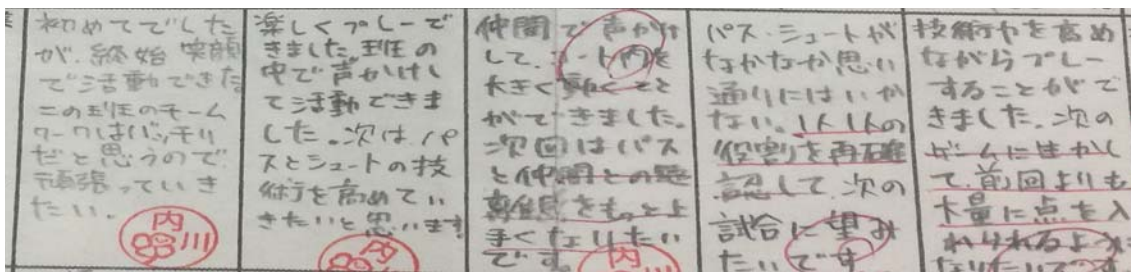 初めてでした
が、終始 笑顔
で活動できた
この班のチーム
ワークはバッチリ
だと思うので
頑張っていき
たい。
内
川
楽しくプレーで
きました。班の
中で声かけし
て活動できま
した。次は、パ
スとシュートの技
術を高めてい
きたいと思います
内
川
仲間で声かけ
して、コート内を
大きく動くこと
ができました。
次回はパス
と仲間との距
離感をもっと上
手くなりたい
です。
内
川
パス・シュートが
なかなか思い
通りにはいか
ない。1人1人の
役割を再確
認して、次の
試合に望み
たいです
技術力を高め
ながらプレー
することがで
きました。次の
ゲームに生かし
て、前回よりも
大量に点を入
れられるように
なりたいです